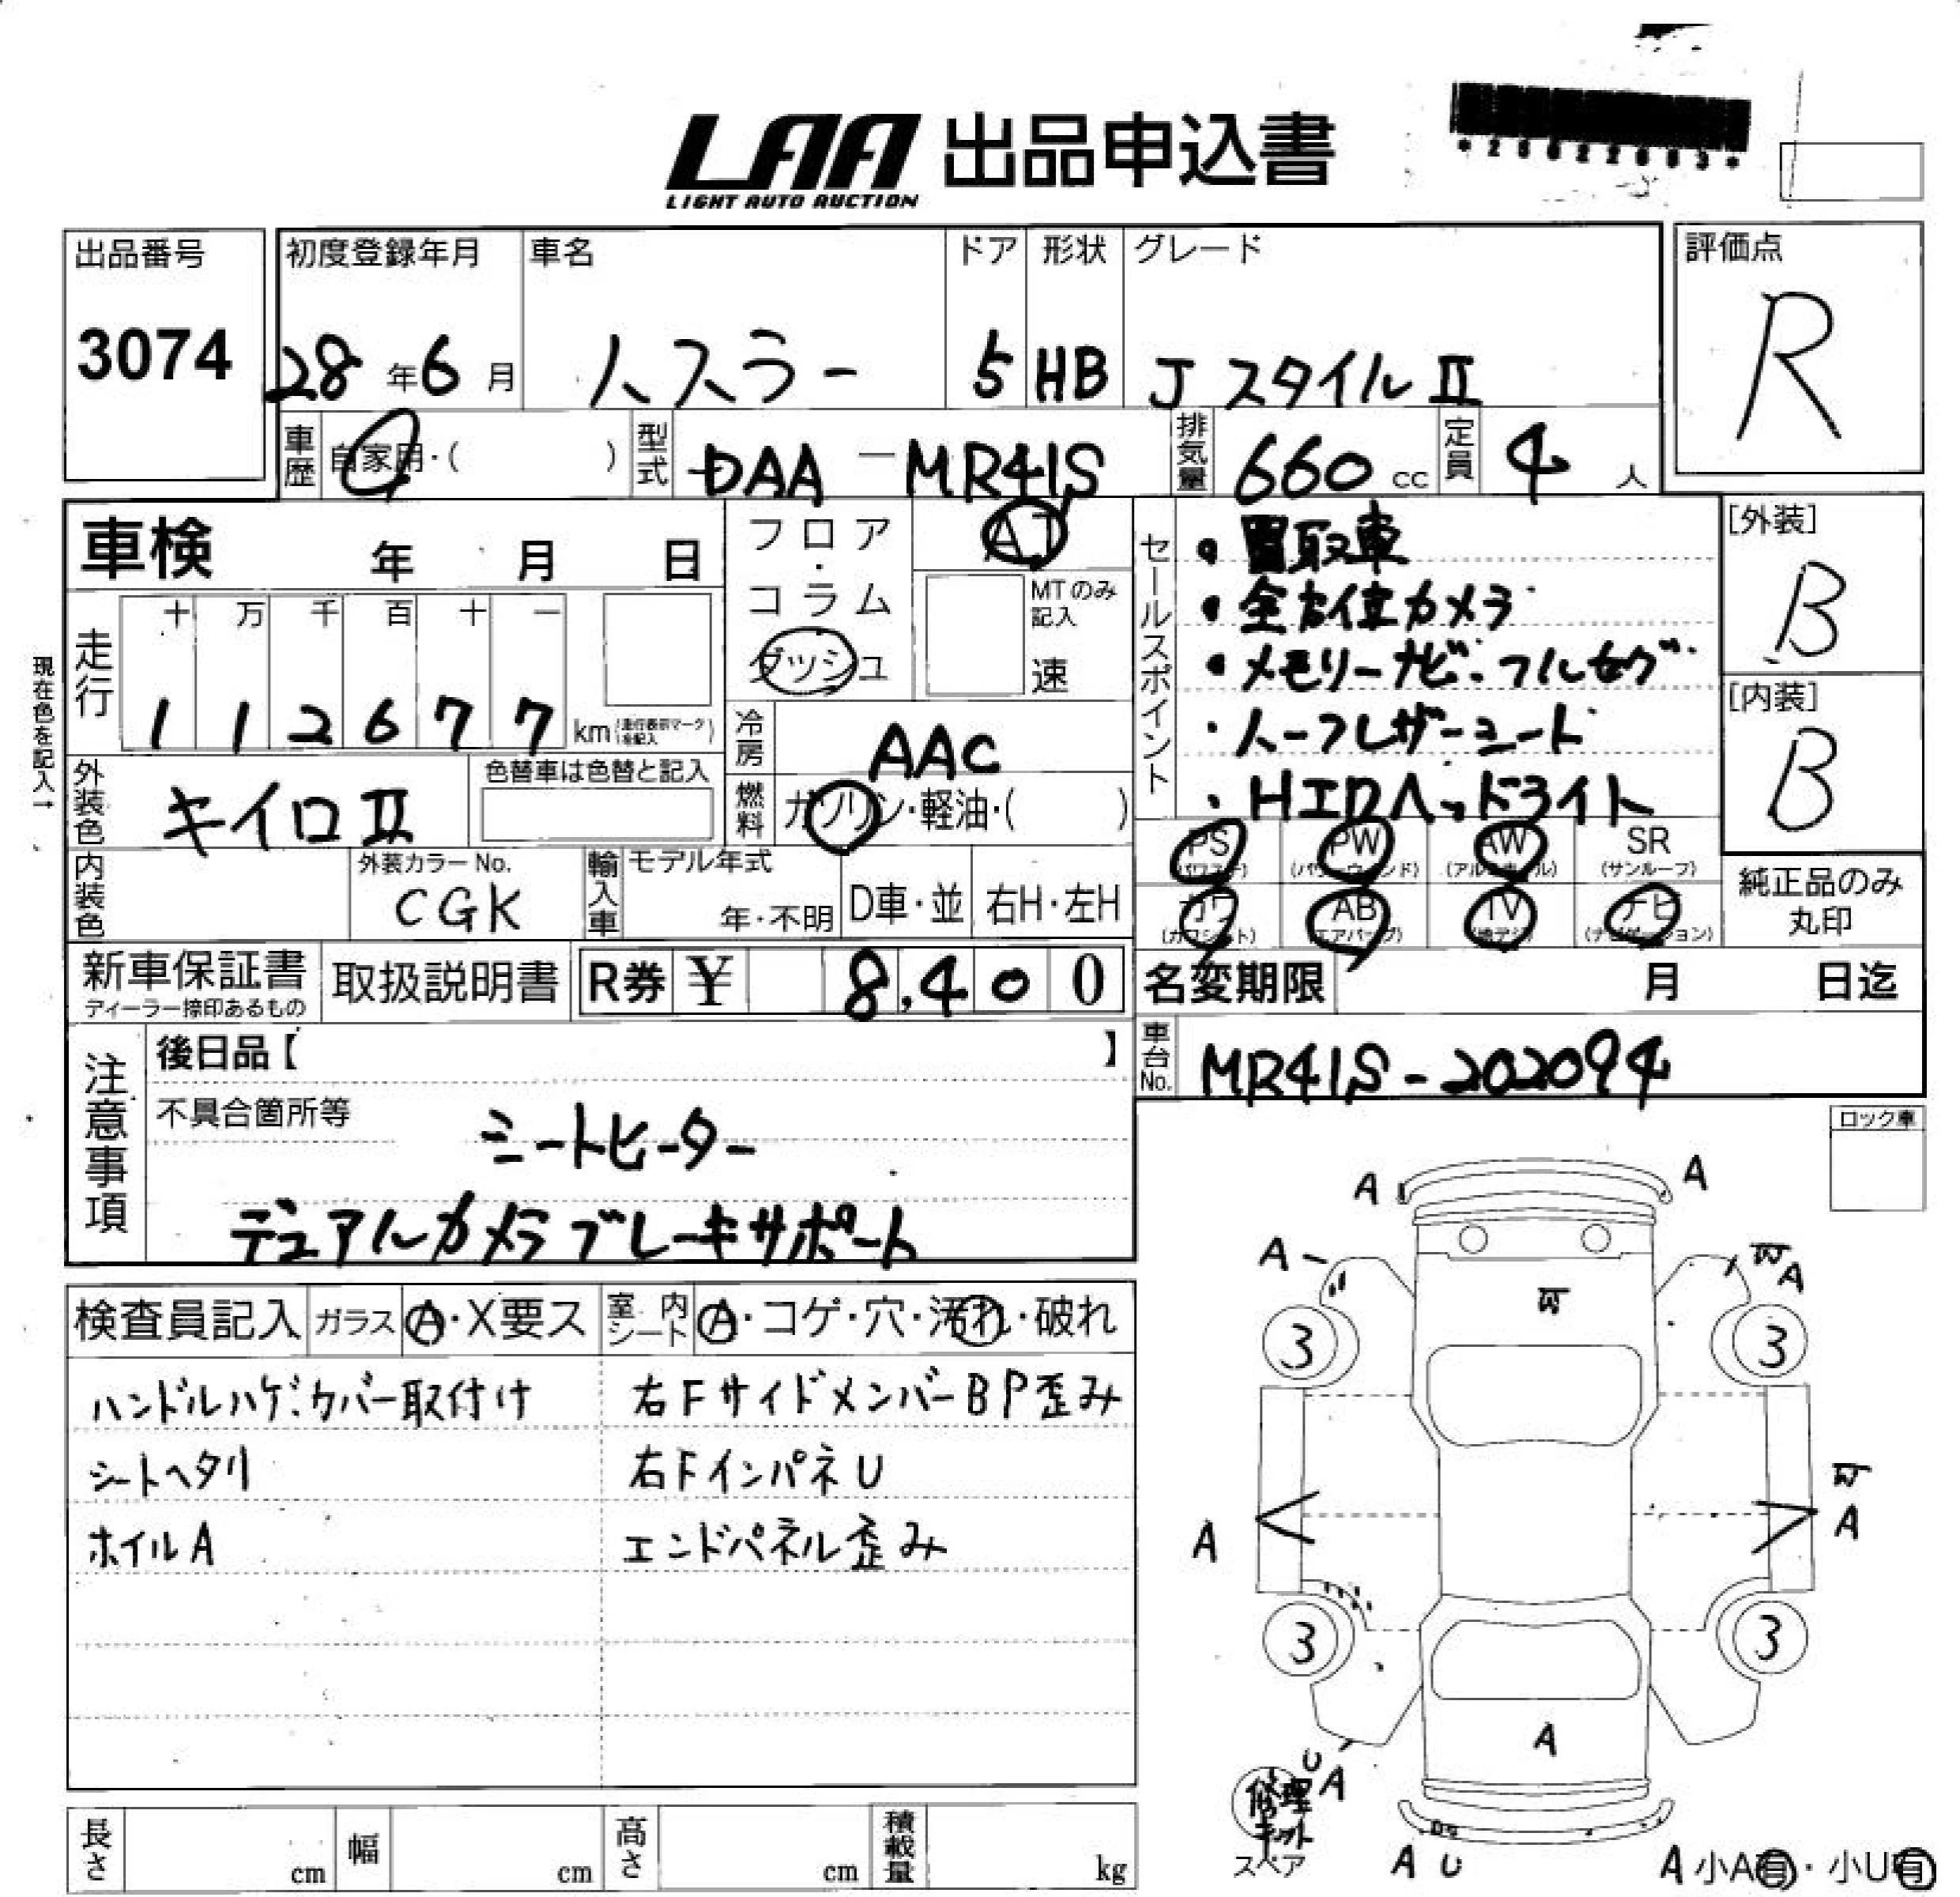 LAA 出品申込書
LIGHT AUTO AUCTION
出品番号
3074
初度登録年月
28年6月
車名
ハスラー
ドア
5
形状
HB
グレード
JスタイルⅡ
評価点
R
車歴
自家用・( )
型式
DAA-MR41S
排気量
660cc
定員
4人
車検 年 月 日
フロア・コラム
ダッシュ
AT
MTのみ記入
速
セールスポイント
・買取車
・全方位カメラ
・メモリーナビ・フルセグ
・ハーフレザーシート
・HIDヘッドライト
[外装]
B
[内装]
B
現在色を記入→
走行
十 万 千 百 十 一
1 1 2 6 7 7 km
(走行表示マークを記入)
冷房
AAC
燃料
ガソリン・軽油・( )
外装色
キイロⅡ
色替車は色替と記入
内装色
外装カラーNo.
CGK
輸入車
モデル年式
年・不明
D車・並
右H・左H
PS
(パワステ)
PW
(パワーウィンド)
AW
(アルミホイル)
SR
(サンルーフ)
カワ
(カワシート)
AB
(エアバッグ)
TV
(地デジ)
ナビ
(ナビゲーション)
純正品のみ
丸印
新車保証書
ディーラー捺印あるもの
取扱説明書
R券 ¥ 8,400
名変期限 月 日迄
車台No.
MR41S-202094
注意事項
後日品【 】
不具合箇所等
シートヒーター
デュアルカメラブレーキサポート
ロック車
検査員記入
ガラス
A・X要ス
室内シート
A・コゲ・穴・汚れ・破れ
ハンドルハゲ:カバー取付け
シートヘタリ
ホイルA
右FサイドメンバーBP歪み
右FインパネU
エンドパネル歪み
A
A
A
A
3
3
A
A
3
3
A
U
A
修理
キット
スペア
A U
A 小A有・小U有
長さ cm
幅 cm
高さ cm
積載量 kg